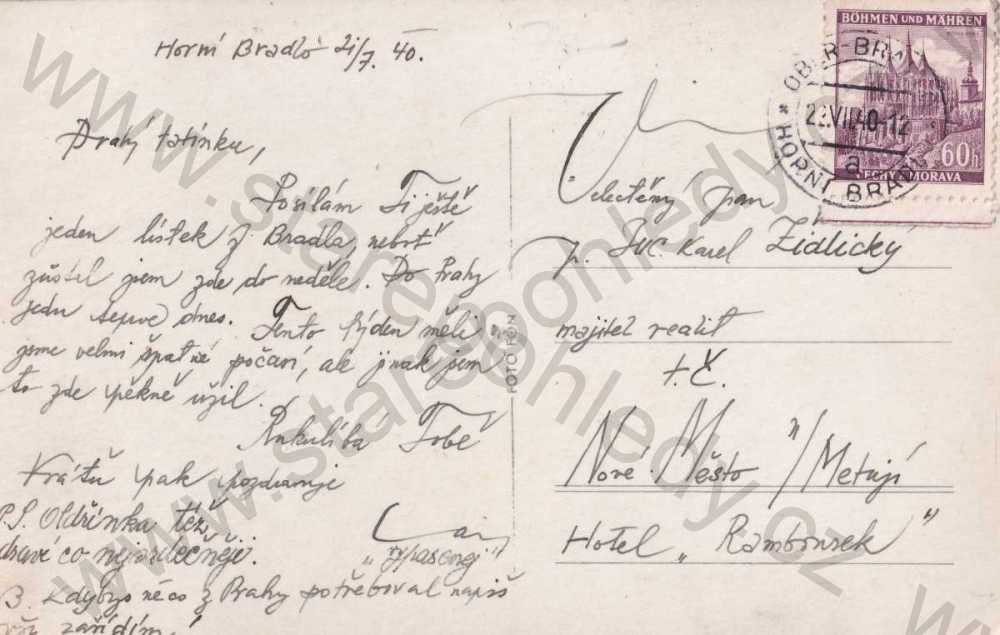 Horní Bradlo 21/7. 40.
Drahý tatínku,
Posílám Ti ještě
jeden lístek z Bradla, neboť
zůstal jsem zde do neděle. Do Prahy
jedu teprve dnes. Tento týden měli
jsme velmi špatné počasí, ale jinak jsem
to zde pěkně užil.
Rukulíbá Tobě
pak pozdravuje
P.S. Oldřinka též
zdraví co nejsrdečněji.
"vypasený"
Kdybys něco z Prahy potřeboval napiš
zařídím!
FOTO FON
BÖHMEN UND MÄHREN
60h
ČECHY A MORAVA
OBER-BRADL
22.VII.40-12
a
* HORNÍ BRADLO
Velectěný pan
p. JUC. Karel Židlický
majitel realit
t.č.
Nové Město n/Metují
Hotel „Rambousek"
www.starepohledy.cz
www.starepohledy.cz